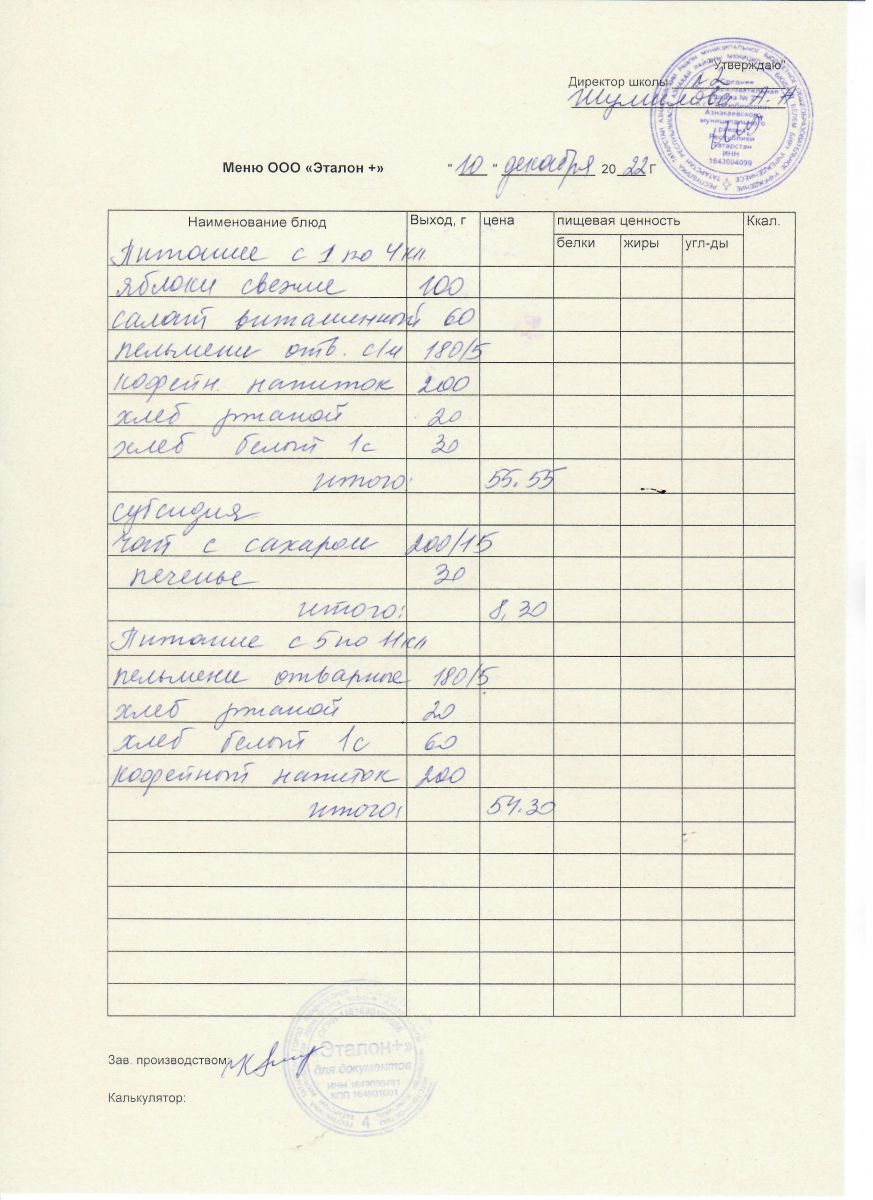 "Утверждаю"
Директор школы №2
Меню ООО «Эталон +» "10" декабря 2022 г
Наименование блюд Выход, г цена пищевая ценность Ккал.
белки жиры угл-ды
Питание с 1 по 4 кл
яблоки свежие 100
салат витаминный 60
пельмени отв. с/м 180/5
кофейн. напиток 200
хлеб ржаной 20
хлеб белый 1с 30
итого: 55.55
субсидия
чай с сахаром 200/15
печенье 30
итого: 8,30
Питание с 5 по 11 кл
пельмени отварные 180/5
хлеб ржаной 20
хлеб белый 1с 60
кофейный напиток 200
итого: 54.30
Зав. производством:
«Эталон+»
для документов
4
Калькулятор: